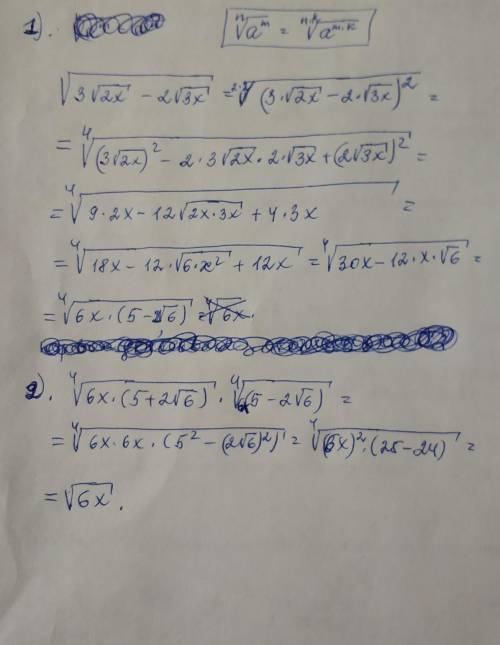 1). ⁿ√aᵐ = ⁿ·ᵏ√aᵐ·ᵏ
√(3√2x - 2√3x) = ²·²√(3·√2x - 2·√3x)² =
= ⁴√((3√2x)² - 2·3√2x·2·√3x + (2√3x)²) =
= ⁴√(9·2x - 12√2x·3x + 4·3x) =
= ⁴√(18x - 12·√6·x² + 12x) = ⁴√(30x - 12·x·√6) =
= ⁴√(6x·(5-2√6))
2). ⁴√(6x·(5+2√6)) · ⁴√(6x(5-2√6)) =
= ⁴√(6x·6x·(5²-(2√6)²)) = ⁴√((6x)²·(25-24)) =
= √6x.